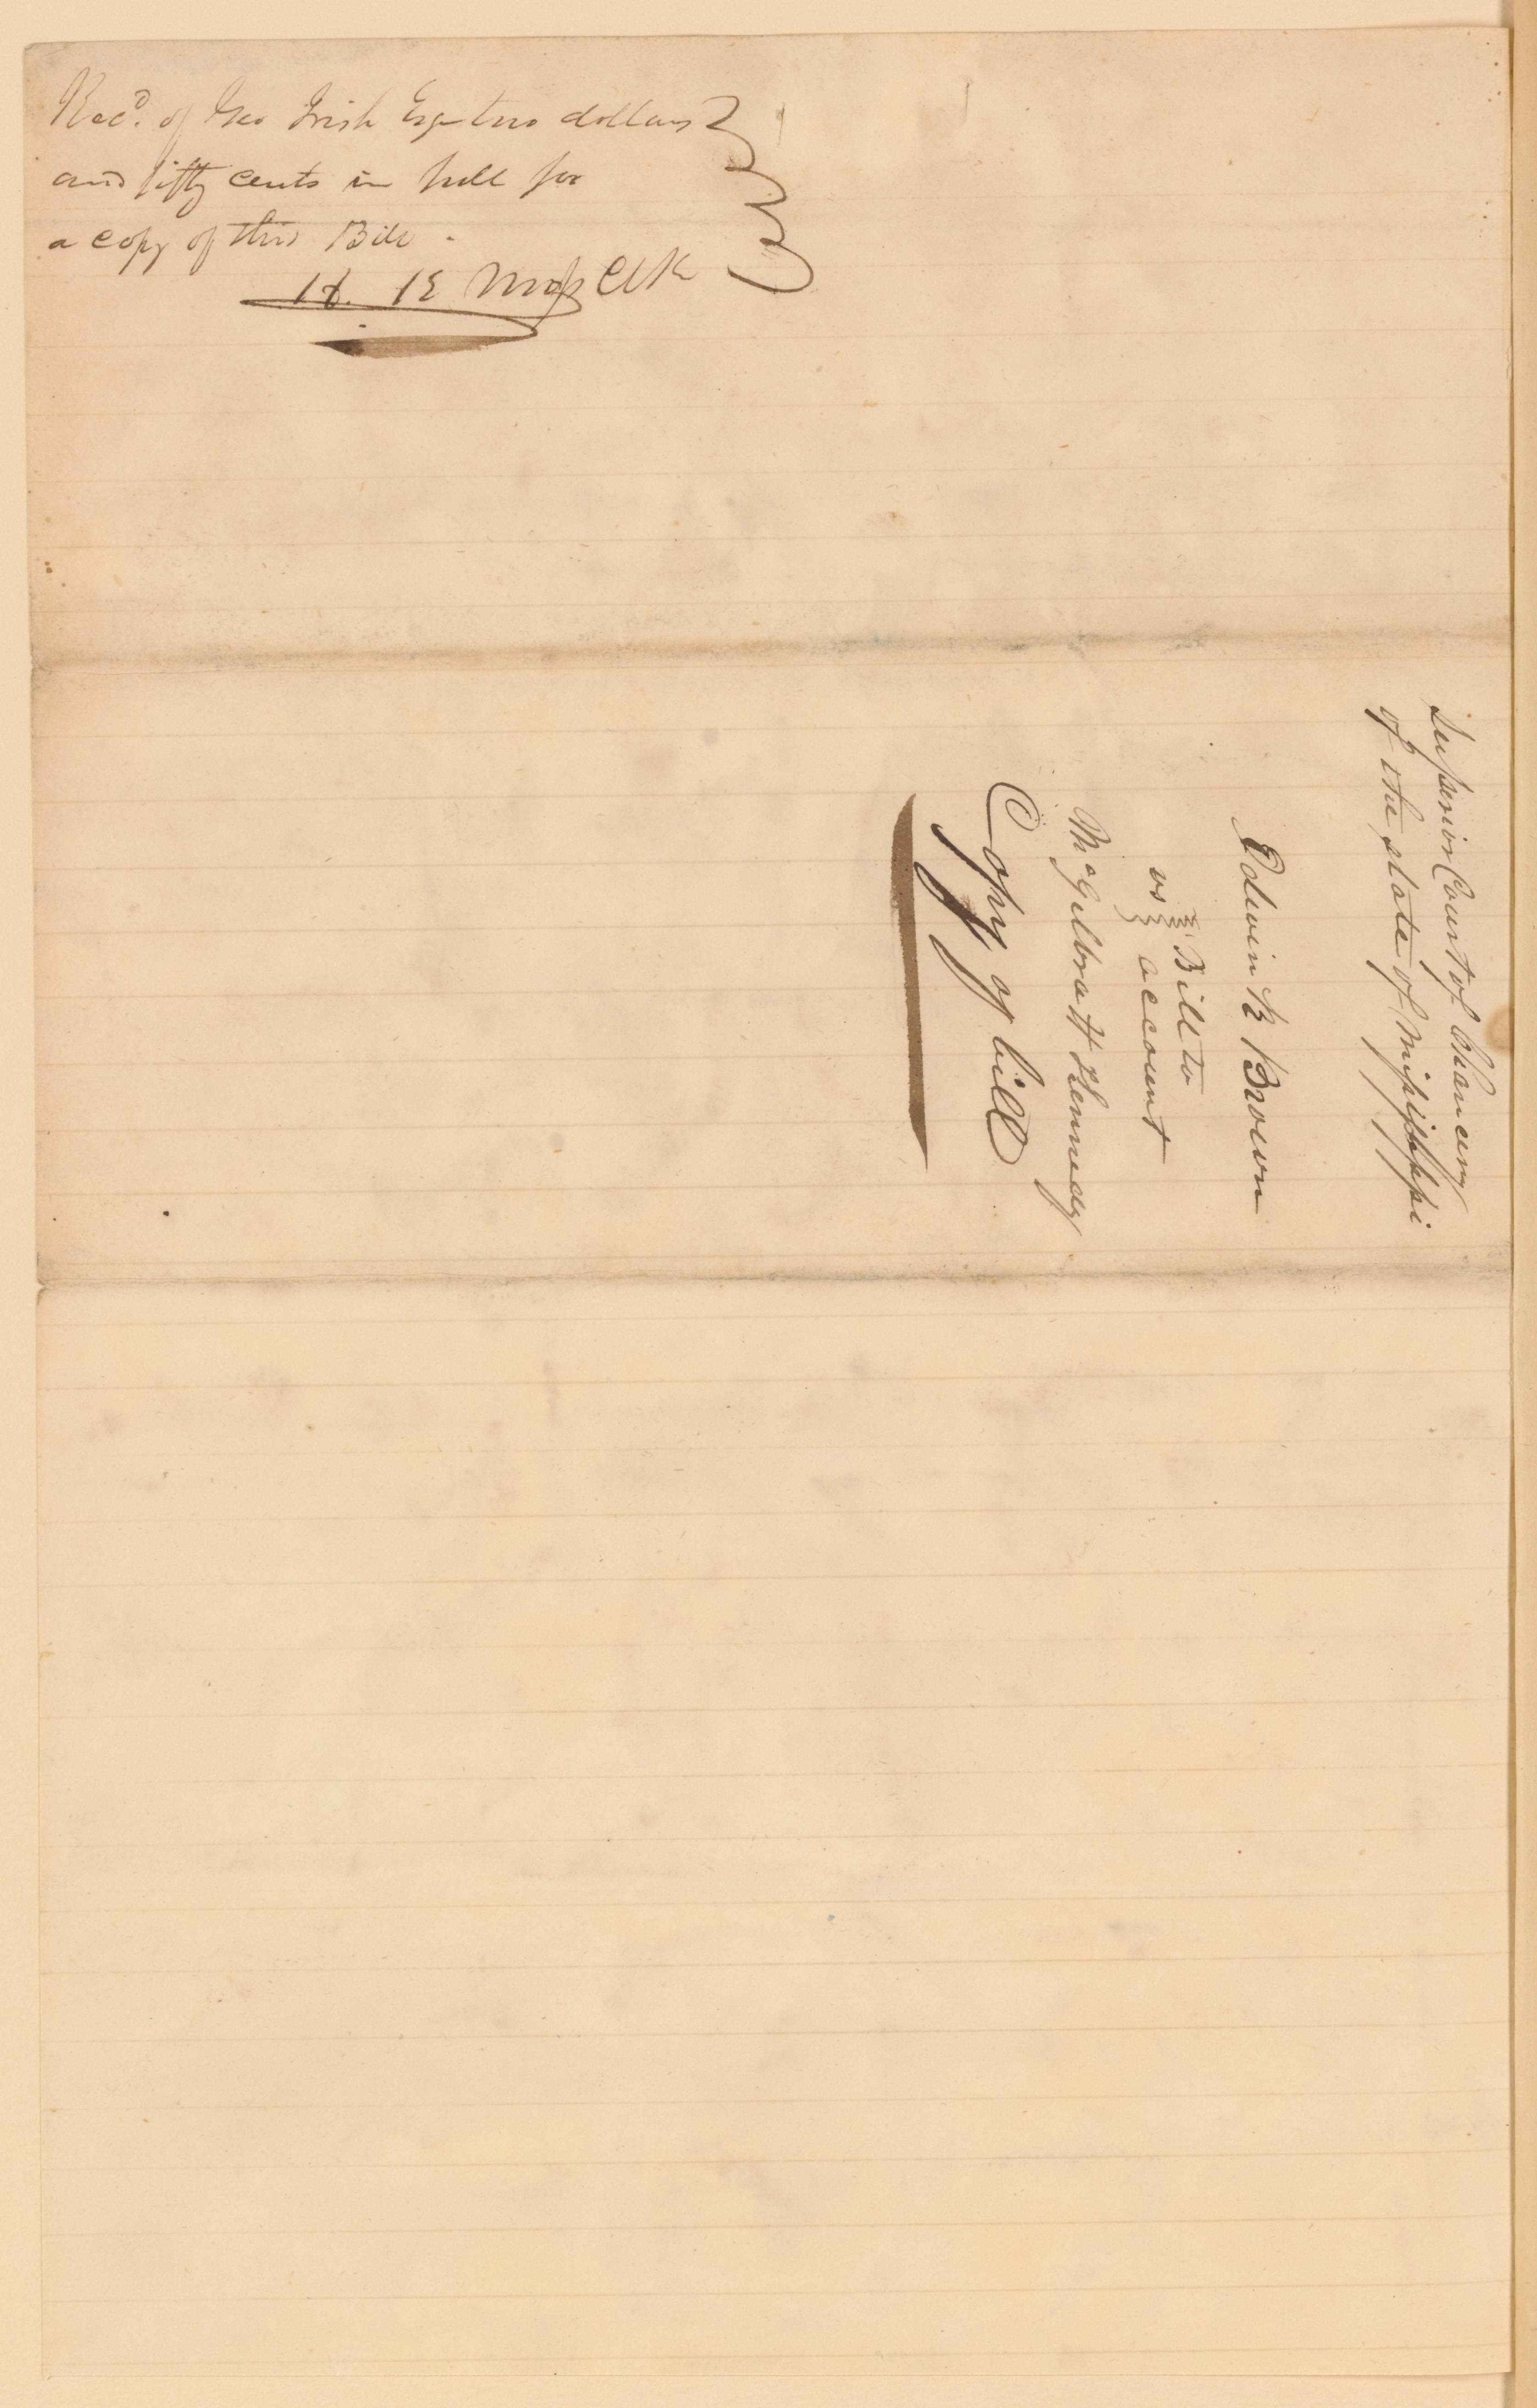 Recd. of Geo Irish Esqr two dollars
and fifty cents in full for
a copy of this Bill.
Moss Clk
Superior Court of Chancery
of the state of Mississippi
Edwin B Brown
vs Bill to
account
McGilbra H Kennedy
Copy of bill